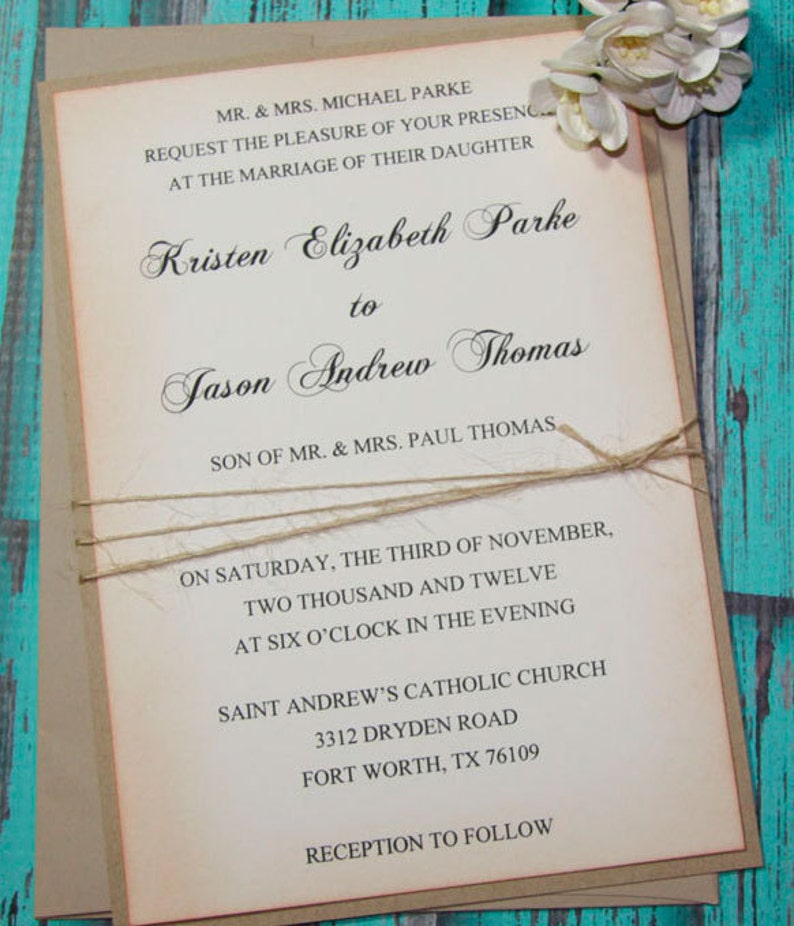 MR. & MRS. MICHAEL PARKE
REQUEST THE PLEASURE OF YOUR PRESENC
AT THE MARRIAGE OF THEIR DAUGHTER
Kristen Elizabeth Parke
to
Jason Andrew Thomas
SON OF MR. & MRS. PAUL THOMAS
ON SATURDAY, THE THIRD OF NOVEMBER,
TWO THOUSAND AND TWELVE
AT SIX O’CLOCK IN THE EVENING
SAINT ANDREW’S CATHOLIC CHURCH
3312 DRYDEN ROAD
FORT WORTH, TX 76109
RECEPTION TO FOLLOW